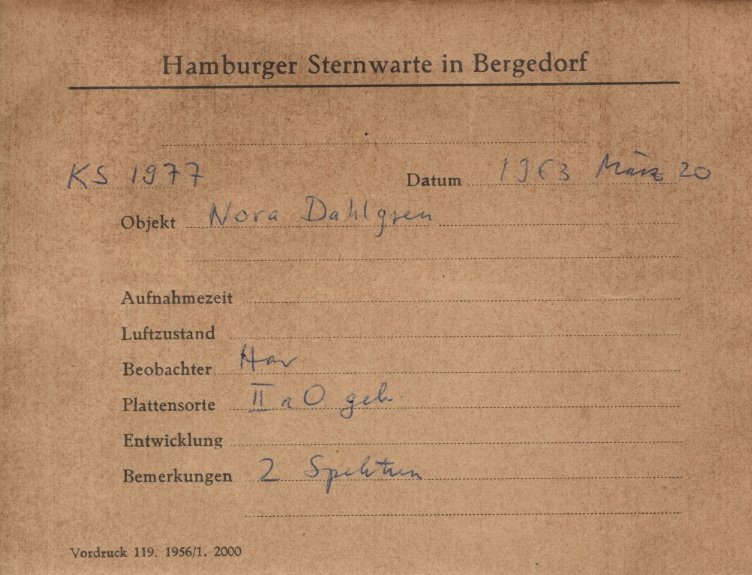 Hamburger Sternwarte in Bergedorf
KS 1977 Datum 1963 März 20
Objekt Nora Dahlgren
Aufnahmezeit
Luftzustand
Beobachter Har
Plattensorte II a O geh
Entwicklung
Bemerkungen 2 Spektren
Vordruck 119. 1956/1. 2000